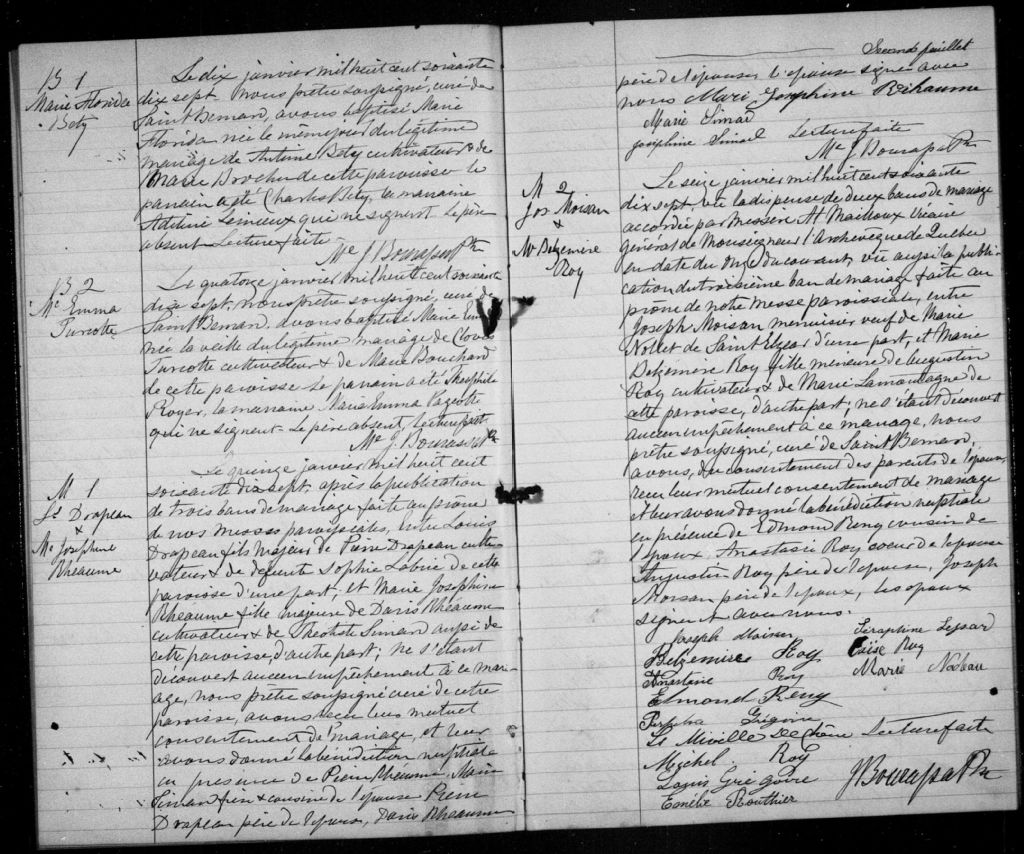 B 1
Marie Florida
Bety
Le dix janvier mil huit cent soixante
dix sept. Nous prêtre soussigné, curé de
Saint Bernard, avons baptisé Marie
Florida née le même jour du légitime
mariage de Antoine Bety cultivateur & de
Marie Brochu de cette paroisse le
parrain a été Charles Bety, la marraine
Adeline Lemieux qui ne signent le père
absent Lecture faite
Me J Bourassa Ptre
B 2
Me Emma
Turcotte
Le quatorze janvier mil huit cent soixante
dix sept, nous prêtre soussigné, curé de
Saint Bernard, avons baptisé Marie Emma
née la veille du légitime mariage de Clovis
Turcotte cultivateur & de Marie Bouchard
de cette paroisse Le parrain a été Théophile
Royer, la marraine Marie Emma Pageotte
qui ne signent le père absent, lecture fait
Me J. Bourassa Ptre
M 1
Ls Drapeau
&
Me Josephine
Rheaume
Le quinze janvier mil huit cent
soixante dix sept, après la publication
de trois bans de mariage faite au prône
de nos messes paroissiales, entre Louis
Drapeau fils majeur de Pierre Drapeau culti-
vateur & de défunte Sophie Labrie de cette
paroisse d'une part; et Marie Josephine
Rheaume fille majeure de Davis Rheaume
cultivateur & de Theotiste Simard aussi de
cette paroisse, d'autre part; ne s'étant
découvert aucun empêchement à ce mari-
age, nous prêtre soussigné curé de cette
paroisse, avons reçu leur mutuel
consentement de mariage, et leur
avons donné la bénédiction nuptiale
en presence de Pierre Rhéaume, Marie
Simard frère & cousine de l'épouse Pierre
Drapeau père de l'époux, Davis Rheaume
Second feuillet
père de l'épouse, l'épouse signe avec
nous Marie Josephine Rehaume
Marie Simard
Josephine Simard Lecture faite
Me J Bourassa Ptre
M 2
Jos Moisan
&
M Delzemire
Roy
Le seize janvier mil huit cent soixante
dix sept. Vu la dispense de deux bans de mariage
accordée par messire At Mailloux Vicaire
général de Monseigneur l'Archevêque de Québec
en date du onze du courant, vu aussi la publi-
cation du troisième ban de mariage faite au
prône de notre messe paroissiale, entre
Joseph Moisan menuisier veuf de Marie
Nollet de Saint Elzear d'une part, et Marie
Delzemere Roy fille mineure de Augustin
Roy cultivateur & de Marie Lamontagne de
cette paroisse, d'autre part; ne s'étant découvert
aucun empêchement à ce mariage, nous
prêtre soussigné, curé de Saint Bernard,
avons, du consentement des parents de l'épouse,
reçu leur mutuel consentement de mariage
& leur avons donné la bénédiction nuptiale
en présence de Edmond Remy cousin de
l'époux Anastasie Roy soeur de l'épouse
Augustin Roy père de l'épouse, Joseph
Moisan père de l'époux, les époux
signent avec nous.
Joseph Moisan Séraphine
Delzemire Roy Roy
Anastasie Roy Marie Nadeau
Edmond Remy
Grégoire
Ls Miville Dechêne Lecture faite
Michel Roy
Louis Gregoire
Routhier
J Bourassa Ptre